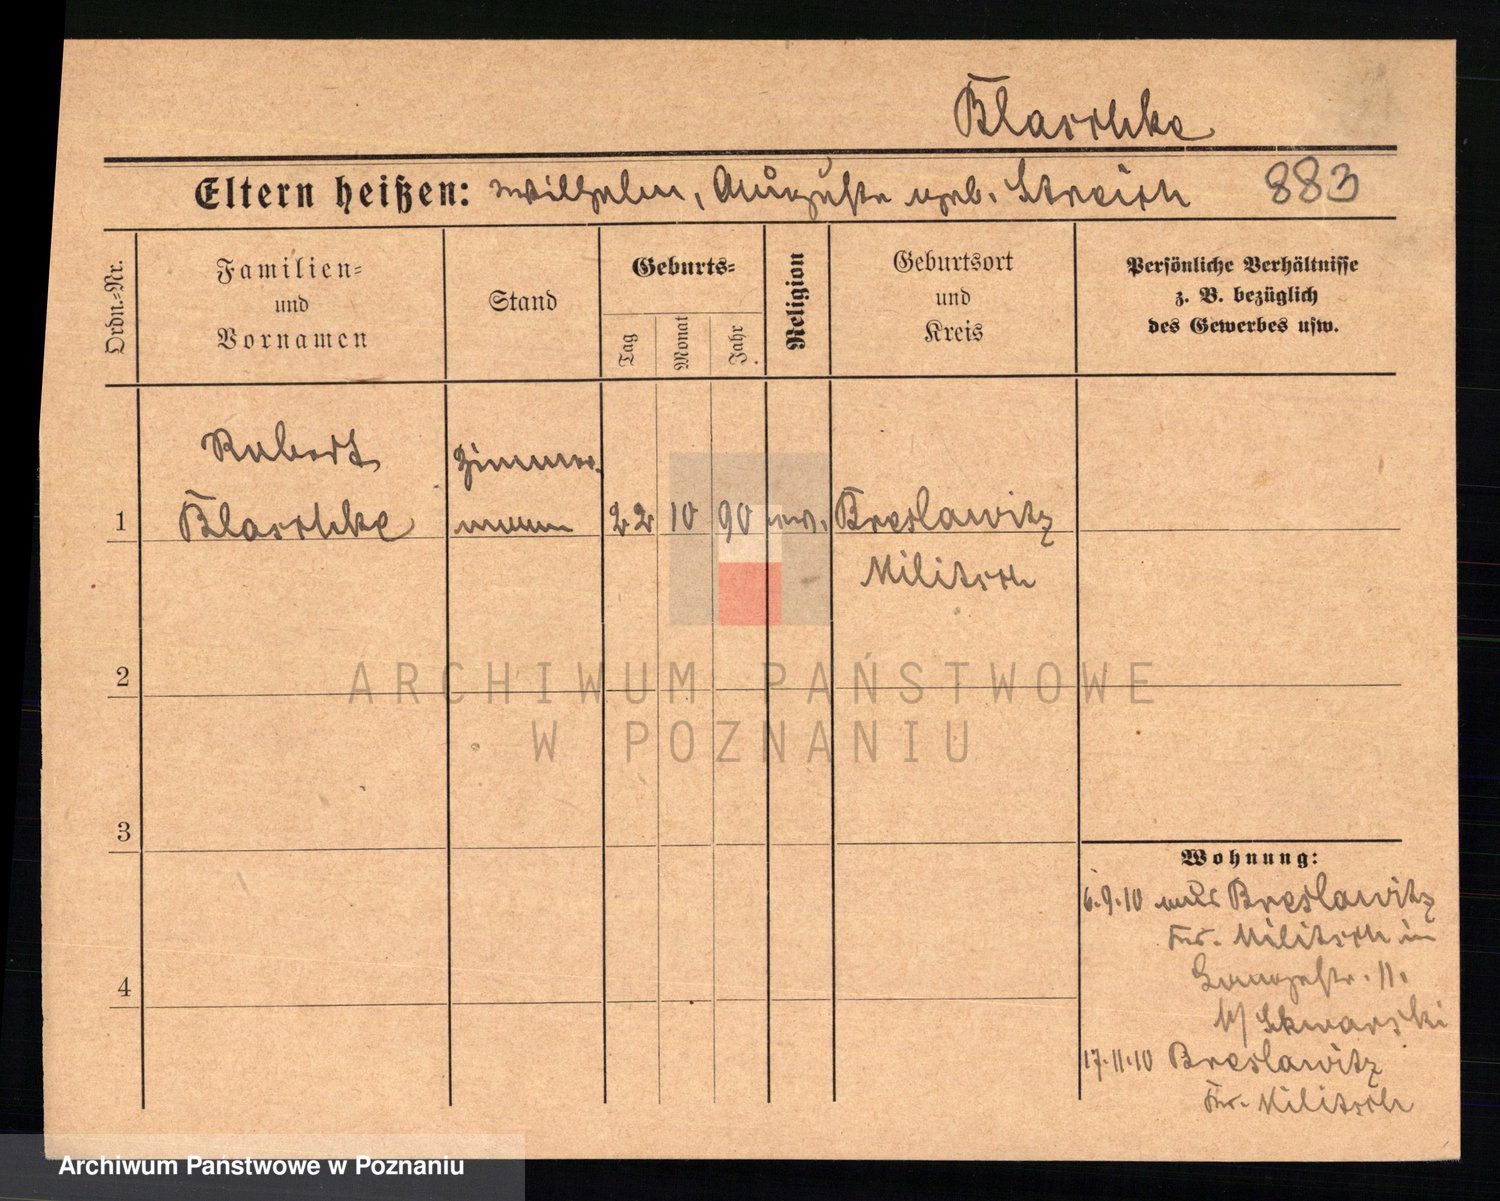 Blaschke
Eltern heißen: Wilhelm, Auguste geb. Streich 883
Ordn.-Nr.
Familien=
und
Vornamen
Stand
Geburts=
Tag
Monat
Jahr
Religion
Geburtsort
und
Kreis
Persönliche Verhältnisse
z. B. bezüglich
des Gewerbes usw.
Robert Zimmer-
1 Blaschke mann 22 10 90 ev. Breslawitz
Militsch
2
ARCHIWUM PAŃSTWOWE
W POZNANIU
3
Wohnung:
6.9.10 aus Breslawitz
Kr. Militsch in
Langestr. 11.
b/ Skwarski
4
17.11.10 Breslawitz
Kr. Militsch
Archiwum Państwowe w Poznaniu